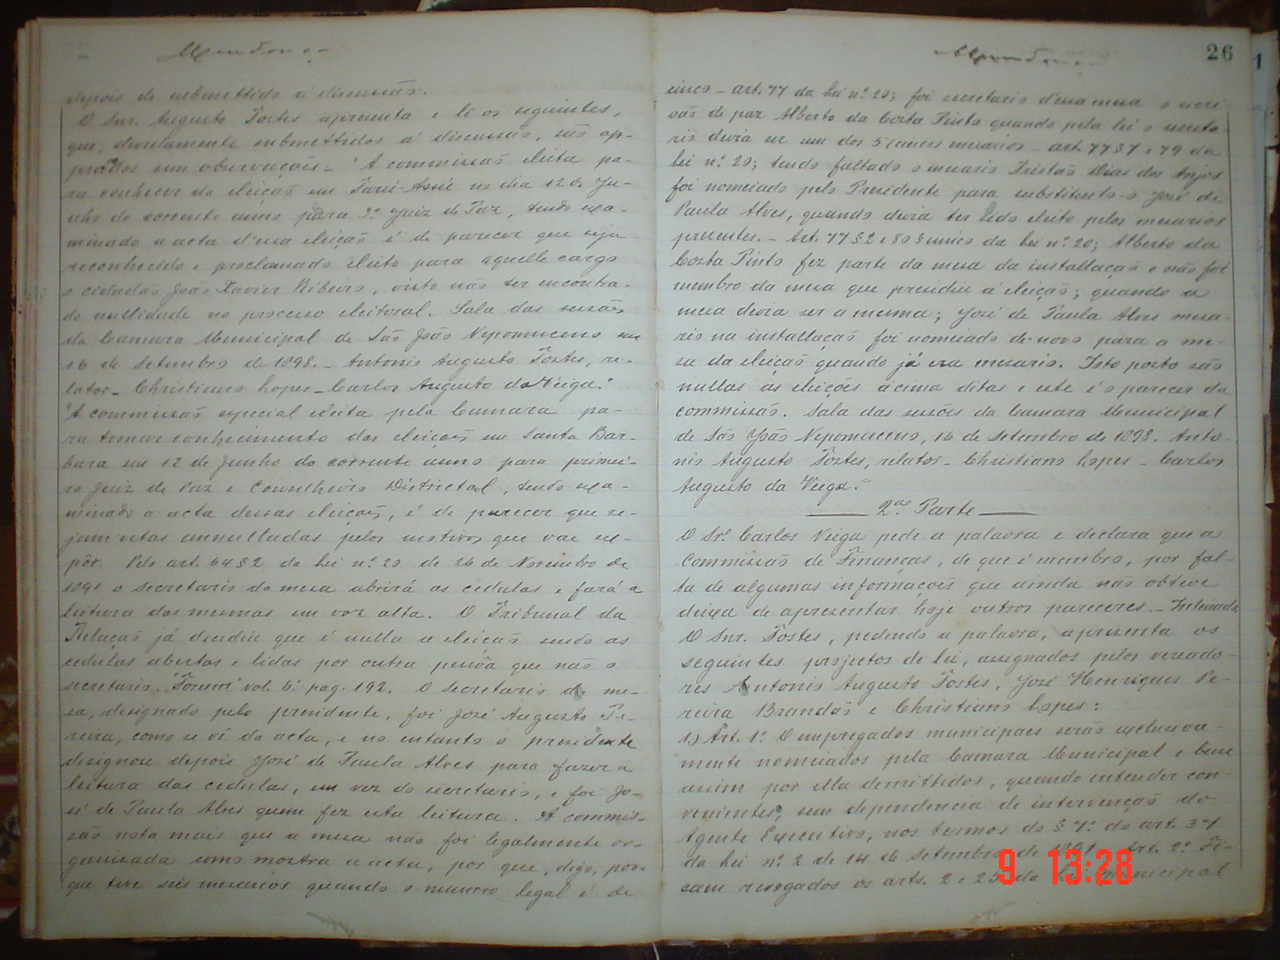 Mendonça
depois de submettido á discussão.
O Snr. Augusto Tostes apresenta e lê os seguintes,
que, devidamente submettidos á discussão, são ap-
provados sem observações - "A commissão eleita pa-
ra conhecer da eleição em Tarú-Assú no dia 12 de Ju-
nho do corrente anno para 3º Juiz de Paz, tendo exa-
minado a acta d'essa eleição é de parecer que seja
reconhecido e proclamado eleito para aquelle cargo
o cidadão João Xavier Ribeiro, visto não ter encontra-
do nullidade no processo eleitoral. Sala das sessões
da Camara Municipal de São João Nepomuceno em
16 de Setembro de 1898. - Antonio Augusto Tostes, re-
lator - Christiano Lopes - Carlos Augusto da Veiga."
"A commissão especial eleita pela Camara pa-
ra tomar conhecimento das eleições em Santa Bar-
bara em 12 de Junho do corrente anno para primei-
ro Juiz de Paz e Conselheiro Districtal, tendo exa-
minado a acta dessas eleições, é de parecer que se-
jam estas annulladas pelos motivos que vae ex-
pôr. Pelo art. 64 § 2 da lei nº 20 de 26 de Novembro de
1891 o secretario da mesa abrirá as cedulas e fará a
leitura das mesmas em voz alta. O Tribunal da
Relação já decidiu que é nulla a eleição sendo as
cedulas abertas e lidas por outra pessôa que não o
secretario. "Forum" vol. 6º pag. 192. O secretario da me-
sa, designado pelo presidente, foi José Augusto Pe-
reira, como se vê da acta, e no entanto o presidente
designou depois José de Paula Alves para fazer a
leitura das cedulas, em vez do secretario, e foi Jo-
sé de Paula Alves quem fez esta leitura. A commis-
são nota mais que a mesa não foi legalmente or-
ganisada como mostra a acta, por que, digo, por-
que teve seis mesarios quando o numero legal é de
Mendonça
26
cinco - art. 77 da lei nº 20; foi secretario d'essa mesa o escri-
vão de paz Alberto da Costa Pinto quando pela lei o secreta-
rio devia ser um dos 5 (cinco) mesarios - art. 77 § 7 e 79 da
lei nº 20; tendo faltado o mesario Tristão Dias dos Anjos
foi nomeiado pelo Presidente para substituil-o José de
Paula Alves, quando devia ter sido eleito pelos mesarios
presentes. - Art. 77 § 2 e 80 § unico da lei nº 20; Alberto da
Costa Pinto fez parte da mesa da installação e não foi
membro da mesa que presidiu á eleição; quando a
mesa devia ser a mesma; José de Paula Alves mesa-
rio na installação foi nomeiado de novo para a me-
sa da eleição quando já era mesario. Isto posto são
nullas as eleições acima ditas e este é o parecer da
commissão. Sala das sessões da Camara Municipal
de São João Nepomuceno, 16 de Setembro de 1898. Anto-
nio Augusto Tostes, relator - Christiano Lopes - Carlos
Augusto da Veiga."
2ª Parte
O Sr. Carlos Veiga pede a palavra e declara que a
Commissão de Finanças, de que é membro, por fal-
ta de algumas informações que ainda não obteve
deixa de apresentar hoje outros pareceres. - Inteirada
O Snr. Tostes, pedindo a palavra, apresenta os
seguintes projectos de lei, assignados pelos vereado-
res Antonio Augusto Tostes, José Henriques Pe-
reira Brandão e Christiano Lopes:
1) Art. 1º O empregados municipaes serão exclusiva-
mente nomeiados pela Camara Municipal e bem
assim por ella demittidos, quando entender con-
veniente, sem dependencia de intervenção do
Agente Executivo, nos termos do § 7º do art. 37
da lei nº 2 de 14 de Setembro de 1891. Art. 2º Fi-
cam revogados os arts. 2 e 25 da Municipal
9 13:28